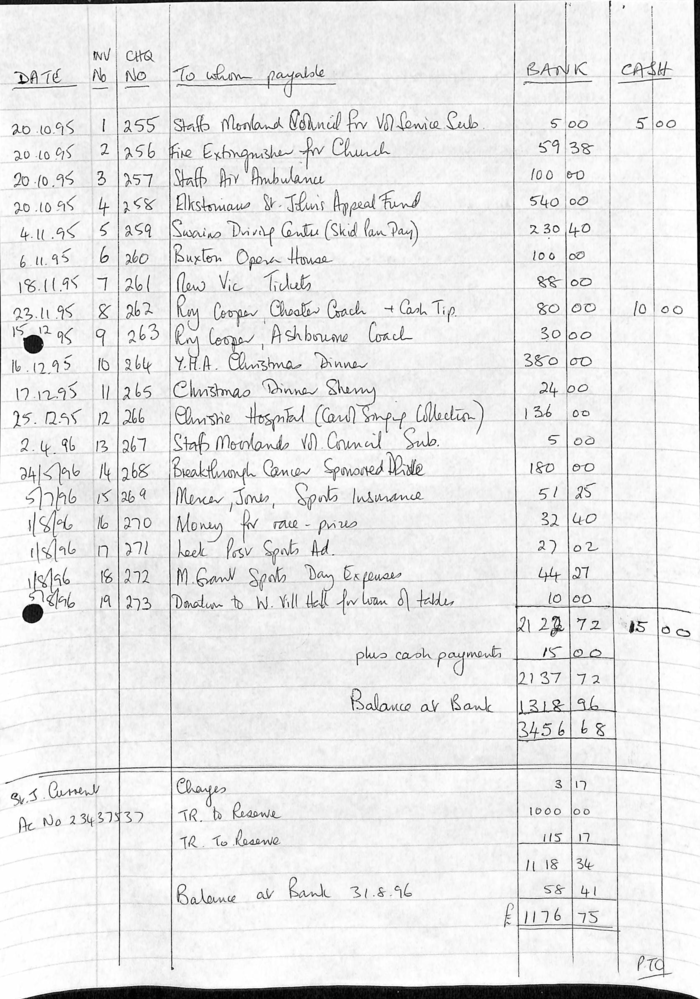 DATE INV No CHQ NO To whom payable BANK CASH
20.10.95 1 255 Staffs Moorland Council for Vol Service Sub. 5 00 5 00
20.10.95 2 256 Fire Extinguisher for Church 59 38
20.10.95 3 257 Staffs Air Ambulance 100 00
20.10.95 4 258 Elkstonians St. John's Appeal Fund 540 00
4.11.95 5 259 Swains Driving Centre (Skid Pan Day) 230 40
6.11.95 6 260 Buxton Opera House 100 00
18.11.95 7 261 New Vic Tickets 88 00
23.11.95 8 262 Roy Cooper, Cheater Coach + Cash Tip. 80 00 10 00
15 12 95 9 263 Roy Cooper, Ashbourne Coach 30 00
16.12.95 10 264 Y.H.A. Christmas Dinner 380 00
17.12.95 11 265 Christmas Dinner Sherry 24 00
25.12.95 12 266 Christie Hospital (Carol Singing Collection) 136 00
2.4.96 13 267 Staffs Moorlands Vol Council Sub. 5 00
24/5/96 14 268 Breakthrough Cancer Sponsored 180 00
5/7/96 15 269 Mercer, Jones, Sports Insurance 51 25
1/8/96 16 270 Money for race - prizes 32 40
1/8/96 17 271 Leek Post Sports Ad. 27 02
1/8/96 18 272 M. Grant Sports Day Expenses 44 27
5/8/96 19 273 Donation to W. Vill Hall for loan of tables 10 00
2122 72 15 00
plus cash payments 15 00
2137 72
Balance at Bank 1318 96
3456 68
St. J. Current Charges 3 17
Ac No 23437537 TR. to Reserve 1000 00
TR. To Reserve 115 17
1118 34
Balance at Bank 31.8.96 58 41
£ 1176 75
PTO